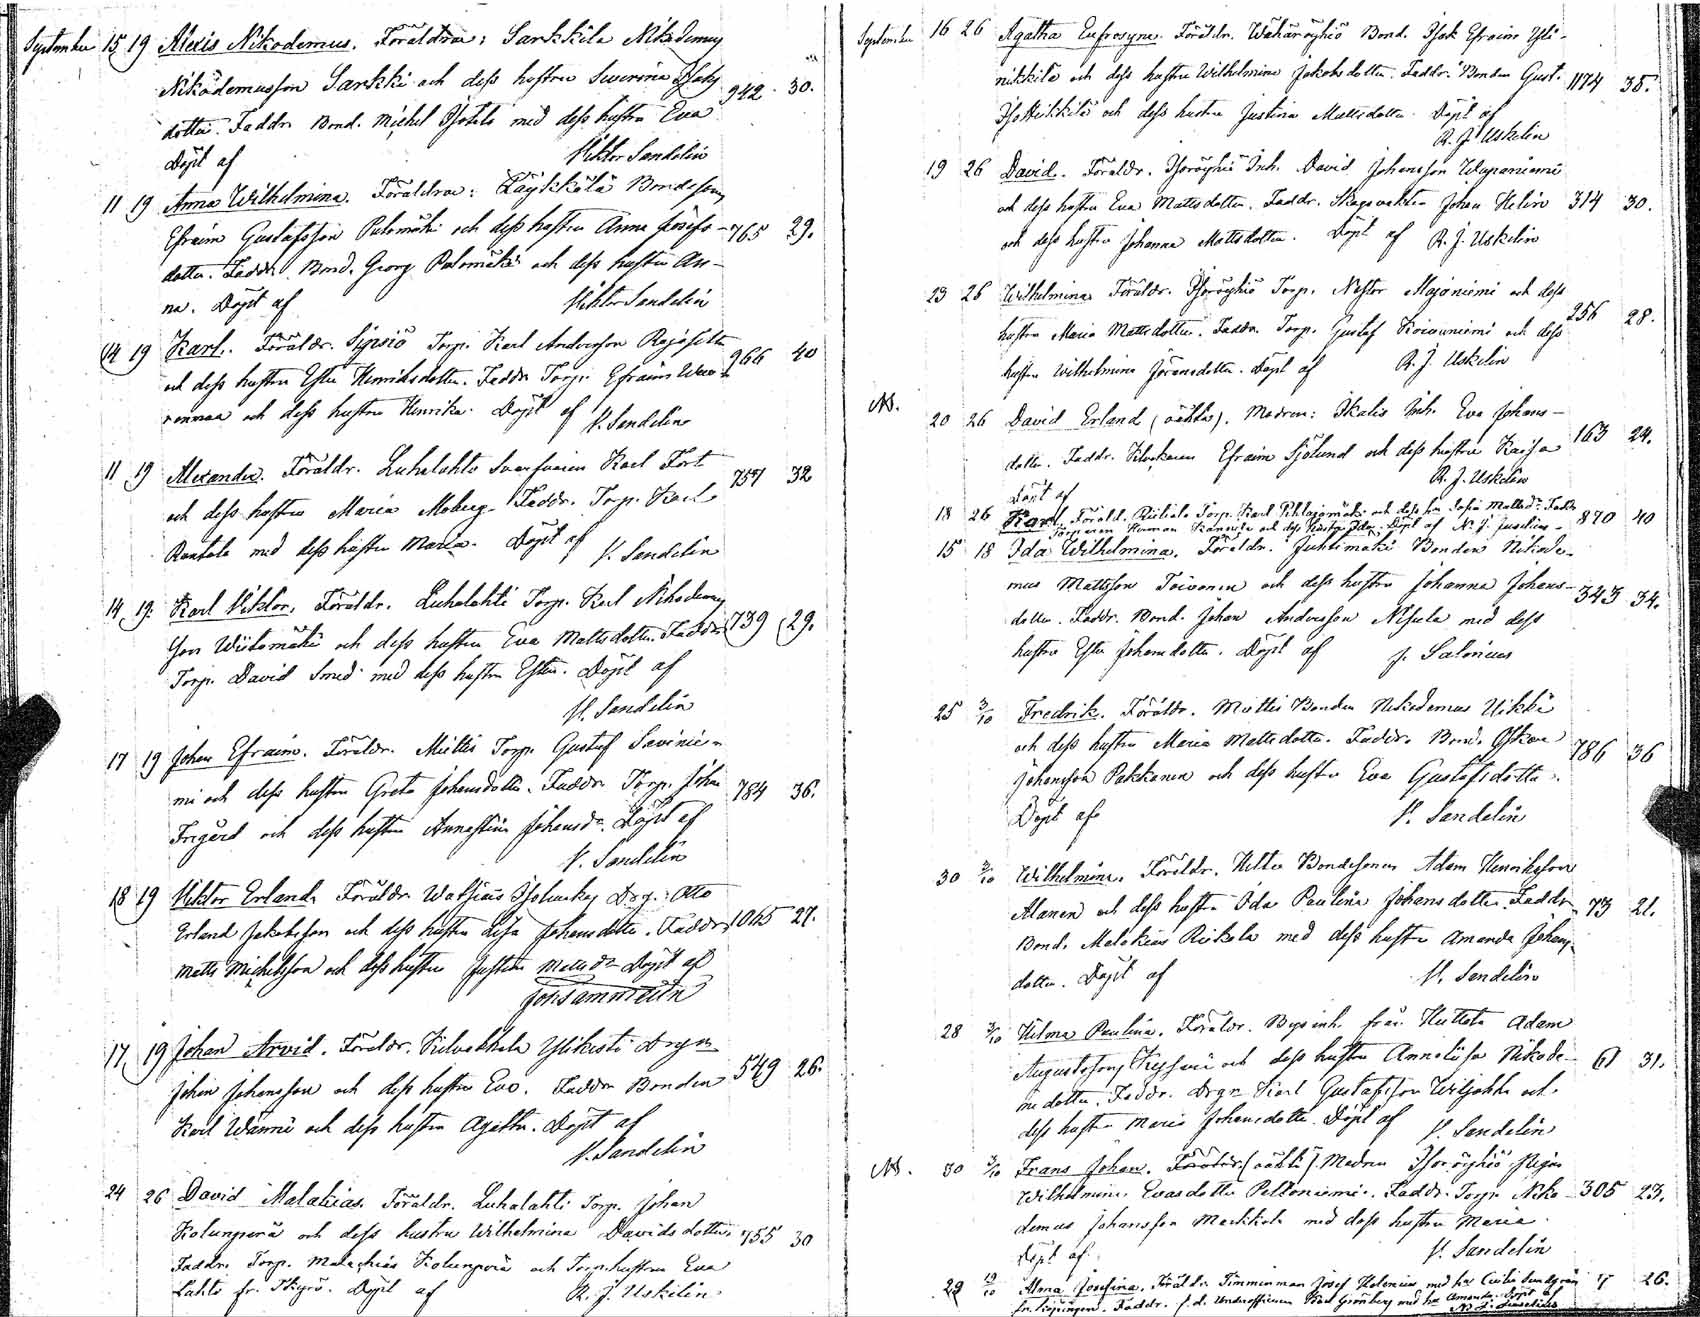 September 15 19 Alexis Nikodemus. Föräldrar: Sarkkila Nikodemus
Nikodemusson Sarkki och dess hustru Severina Isaks 942 30.
dotter. Faddr. Bond. Michel Isotalo med dess hustru Eva
Döpt af Viktor Sandelin
11 19 Anna Wilhelmina. Föräldrar: Läykkälä Bondeson
Efraim Gustafsson Palomäki och dess hustru Anna Josefs- 765 29.
dotter. Faddr. Bond. Georg Palomäki och dess hustru An-
na. Döpt af Viktor Sandelin
14 19 Karl. Föräldr. Sipsiö Torp. Karl Andersson
och dess hustru Ester Henriksdotter. Faddr. Torp. Efraim 966 40
och dess hustru Henrika. Döpt af V. Sandelin
11 19 Alexander. Föräldr. Luhalahti Karl Fort
och dess hustru Maria Moberg. Faddr. Torp. Karl 757 32
Rantala med dess hustru Maria. Döpt af V. Sandelin
14 19. Karl Viktor. Föräldr. Luhalahti Torp. Karl Nikodemus
son Wiitamäki och dess hustru Eva Mattsdotter. Faddr. 739 29.
Torp. David Smed med dess hustru Ester. Döpt af
V. Sandelin
17 19 Johan Efraim. Föräldr. Miettis Torp. Gustaf Savinie-
mi och dess hustru Greta Johansdotter. Faddr. Torp. Johan 784 36.
Frigård och dess hustru Annastina Johansdr. Döpt af
V. Sandelin
18 19 Viktor Erland. Föräldr. Drg. Otto
Erland Jakobsson och dess hustru Lisa Johansdotter. Faddr. 1065 27.
Matts Michelsson och dess hustru Justina Mattsdr Döpt af
Joh Sammelin
17 19 Johan Arvid. Föräldr. Kilvakkala Ylikisti Drgn
Johan Johansson och dess hustru Eva. Faddr. Bonden 549 26.
Karl Wänni och dess hustru Agatha. Döpt af
V. Sandelin
24 26 David Malakias. Föräldr. Luhalahti Torp. Johan
Kolunperä och dess hustru Wilhelmina Davidsdotter. 755 30
Faddr. Torp. Malachias Kolunperä och Torp. hustrun Eva
Lahti fr. Ikyrö. Döpt af R. J. Uskelin
September 16 26 Agatha Eufrosyne. Föräldr. Wähäröyhiö Bond. Isak Efraim Yli-
nikkilä och dess hustru Wilhelmina Jakobsdotter. Faddr. Bonden Gust. 1174 35.
och dess hustru Justina Mattsdotter. Döpt af
R. J. Uskelin
19 26 David. Föräldr. Isoröyhiö Inh. David Johansson Wapaniemi
och dess hustru Eva Mattsdotter. Faddr. Skogvaktar Johan Helin 314 30.
och dess hustru Johanna Mattsdotter. Döpt af R. J. Uskelin
23 26 Wilhelmina. Föräldr. Isoröyhiö Torp. Nestor Majaniemi och dess
hustru Maria Mattsdotter. Faddr. Torp. Gustaf Koivuniemi och dess 256 28.
hustru Wilhelmina Jöransdotter. Döpt af R. J. Uskelin
NB.
20 26 David Erland (oäkta). Modren: Ikalis Inh. Eva Johans-
dotter. Faddr. Klockaren Efraim Sjölund och dess hustru Kaisa 163 24.
Döpt af R. J. Uskelin
18 26 Karl. Föräld. Riitiala Torp. Karl Pihlajamäki och dess hu Sofia Mattsdr. Faddr.
Herman och dess hustru Ida. Döpt af N. J. Juselius 870 40
15 18 Ida Wilhelmina. Föräldr. Juhtimäki Bonden Nikode-
mus Mattsson Toivonen och dess hustru Johanna Johans- 343 34.
dotter. Faddr. Bond. Johan Andersson Nisula med dess
hustru Ester Johansdotter. Döpt af J. Salonius
25 3/10 Fredrik. Föräldr. Miettis Bonden Nikodemus Uikki
och dess hustru Maria Mattsdotter. Faddr. Bond. Oskar 786 36
Johansson Pakkanen och dess hustru Eva Gustafsdotter.
Döpt af V. Sandelin
30 3/10 Wilhelmina. Föräldr. Heltti Bondesonen Adam Henriksson
Alanen och dess hustru Ida Paulina Johansdotter. Faddr. 73 21.
Bond. Malakias Rikala med dess hustru Amanda Johans
dotter. Döpt af V. Sandelin
28 3/10 Hilma Paulina. Föräldr. Bysinh. från Huttola Adam
Augustsson och dess hustru Annalisa Nikode- 61 31.
mi dotter. Faddr. Drgn Karl Gustafsson Wiljakka och
dess hustru Maria Johansdotter. Döpt af V. Sandelin
NB. 30 3/10 Frans Johan. Föräldr. (oäkta). Modren Isoröyhiö Pigan
Wilhelmina Evasdotter Peltoniemi. Faddr. Torp. Niko- 305 23.
demus Johansson Markkola med dess hustru Maria.
Döpt af V. Sandelin
29 10/10 Alma Josefina. Föräldr. Timmerman Josef Helenius med hu Cecilia Sundgren 7 26.
Faddr. f.d. Underofficeren Karl Grönberg med hu Amanda. Döpt af
N. J. Juselius